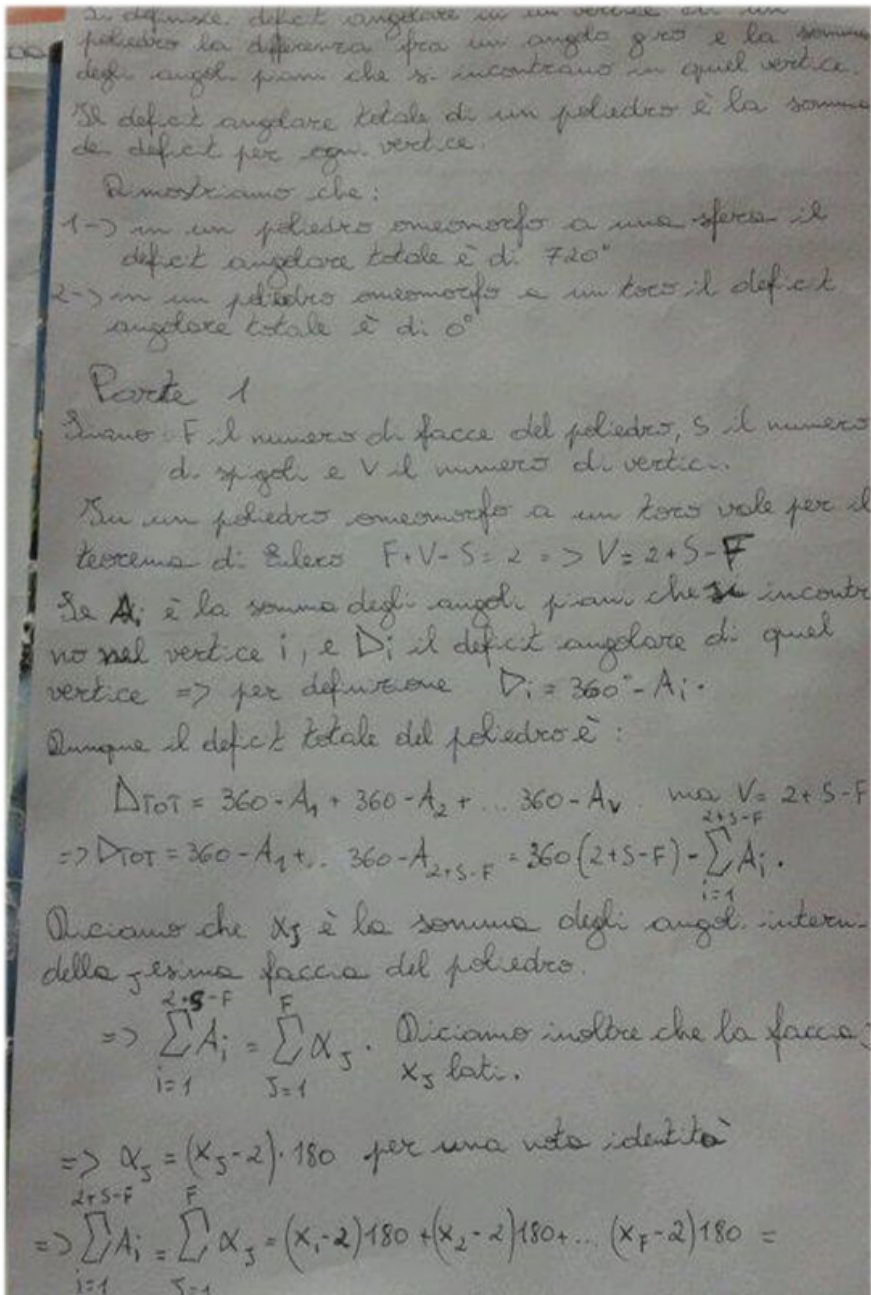 Si definisce deficit angolare in un vertice di un
poliedro la differenza fra un angolo giro e la somma
degli angoli piani che si incontrano in quel vertice.
Il deficit angolare totale di un poliedro è la somma
dei deficit per ogni vertice.
Dimostriamo che:
1-> in un poliedro omeomorfo a una sfera il
deficit angolare totale è di 720°
2-> in un poliedro omeomorfo a un toro il deficit
angolare totale è di 0°
Parte 1
Siano F il numero di facce del poliedro, S il numero
di spigoli e V il numero di vertici.
In un poliedro omeomorfo a un toro vale per il
teorema di Eulero F+V-S=2 => V=2+S-F
Se Ai è la somma degli angoli piani che si incontra
no nel vertice i, e Di il deficit angolare di quel
vertice => per definizione Di = 360° - Ai.
Dunque il deficit totale del poliedro è:
DTOT = 360-A1 + 360-A2 + ... 360-AV ma V=2+S-F
=> DTOT = 360-A1 +... 360-A2+S-F = 360(2+S-F) - ∑_{i=1}^{2+S-F} Ai.
Diciamo che αJ è la somma degli angoli interni
della Jesima faccia del poliedro.
=> ∑_{i=1}^{2+S-F} Ai = ∑_{J=1}^{F} αJ. Diciamo inoltre che la faccia J
xJ lati.
=> αJ = (xJ-2)·180 per una nota identità
=> ∑_{i=1}^{2+S-F} Ai = ∑_{J=1}^{F} αJ = (x1-2)180 + (x2-2)180 + ... (xF-2)180 =